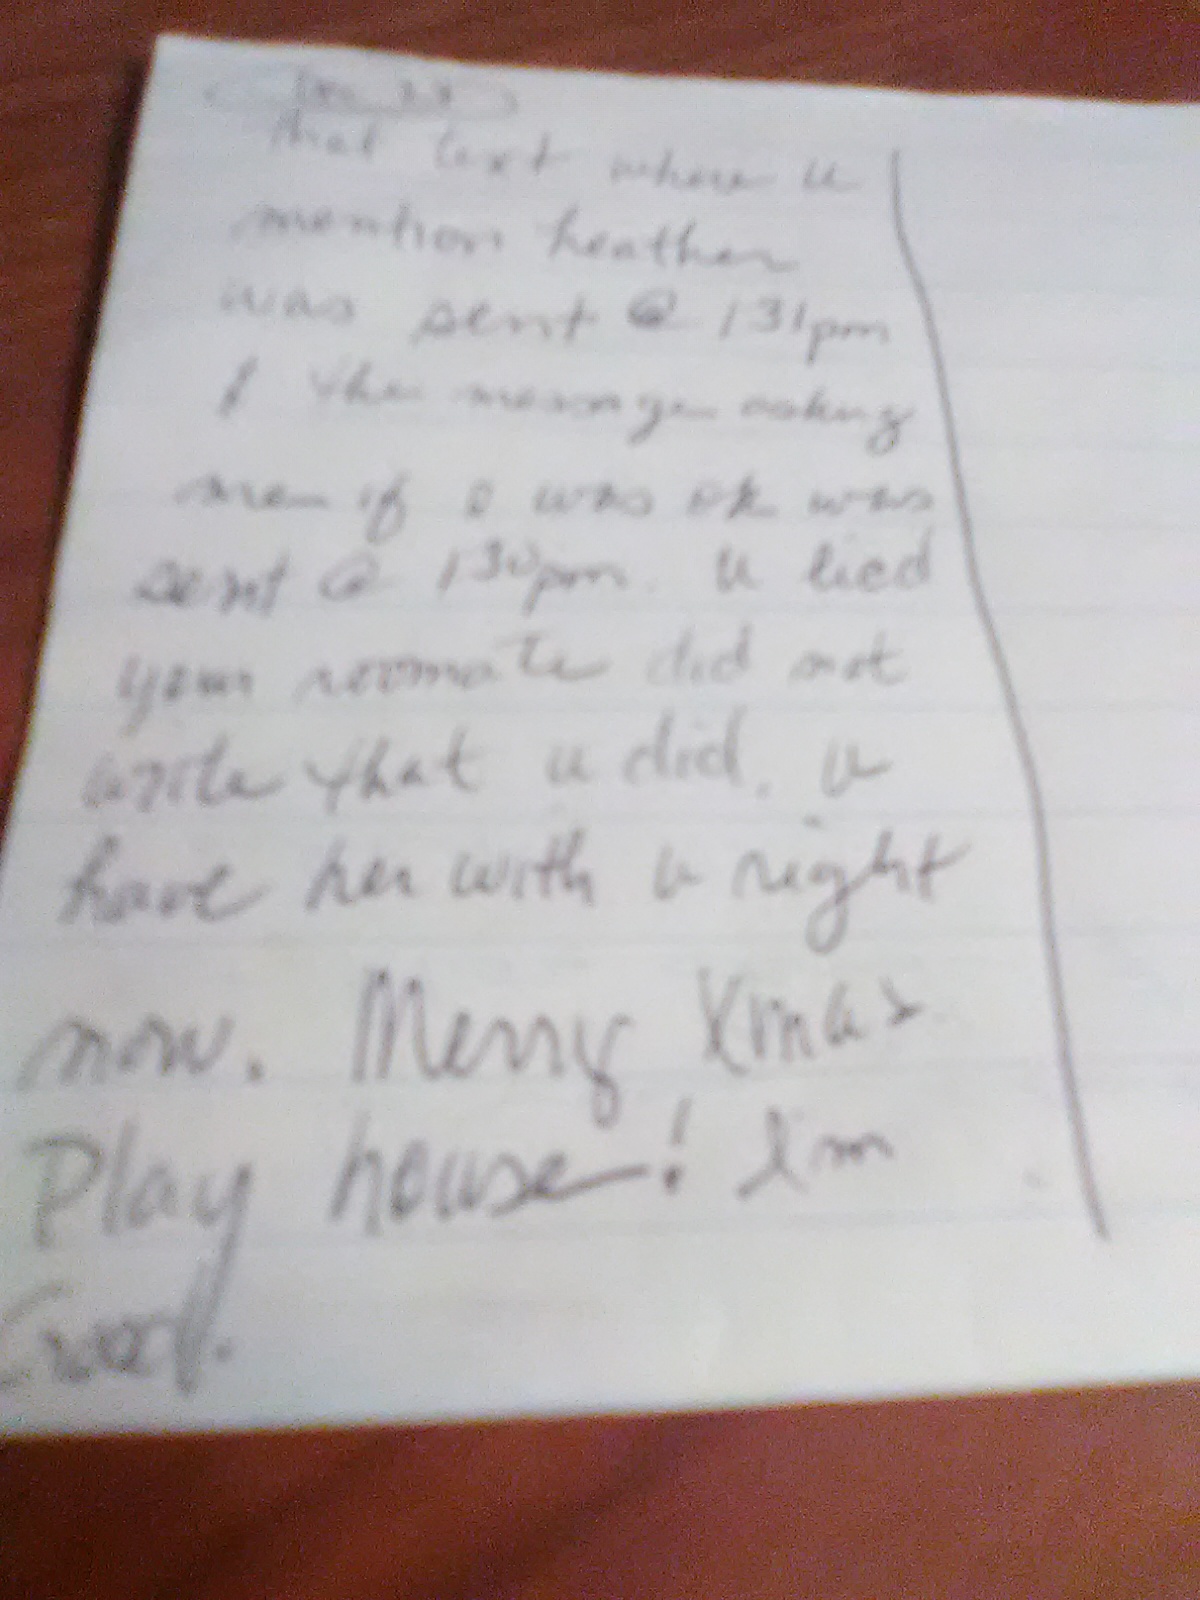 that text where u
mention heather
was sent @ 131pm
& the message asking
me if I was ok was
sent @ 130pm. u lied
your roomate did not
write that u did. u
have her with u right
now. Merry Xmas
Play house! I'm